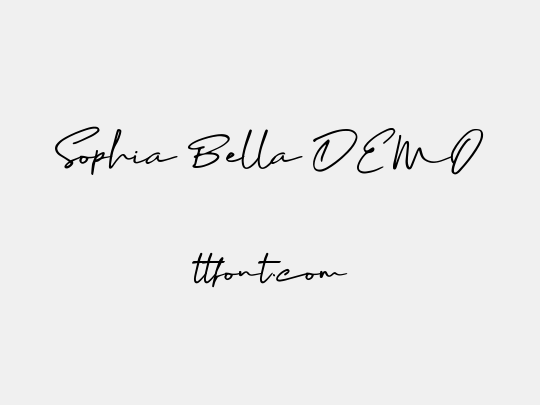 Sophia Bella DEMO
ttfont.com